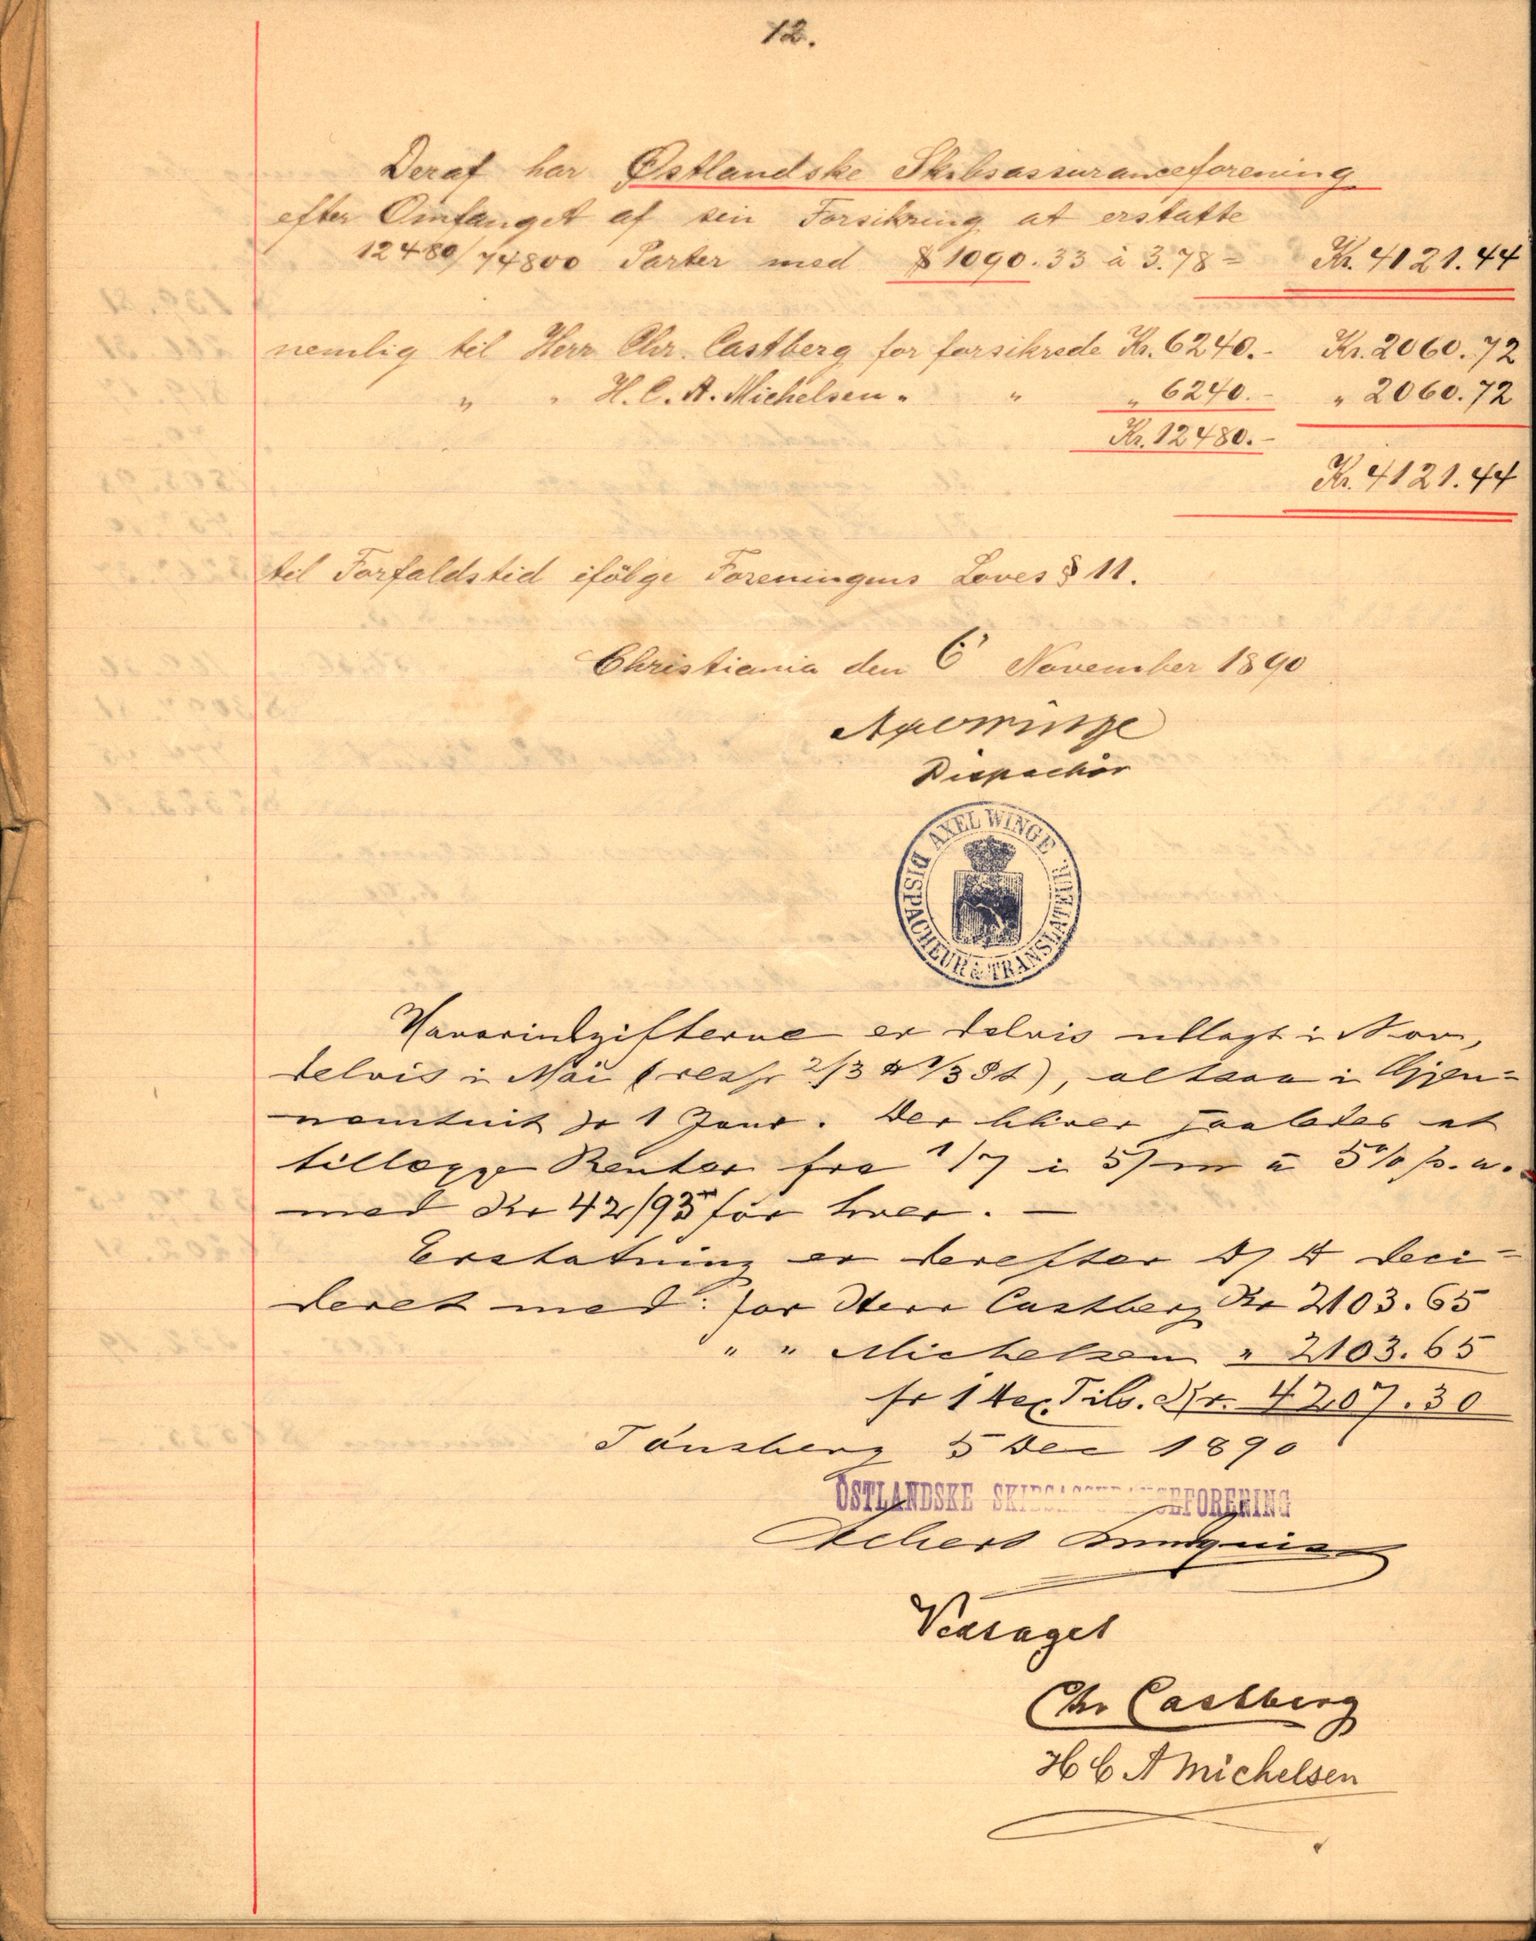 12.
Deraf har Østlandske Skibsassuranceforening
efter Omfanget af sin Forsikring at erstatte
12480/74800 Parter med $1090.33 à 3.78 = Kr. 4121.44
nemlig til Herr Chr. Castberg for forsikrede Kr. 6240.- Kr. 2060.72
" " H. C. A. Michelsen " " " 6240.- " 2060.72
Kr. 12480.-
Kr. 4121.44
til Forfaldstid ifølge Foreningens Loves § 11.
Christiania den 6 November 1890
Axel Winge
Dispachör
AXEL WINGE
DISPACHEUR & TRANSLATEUR
Havariudgifterne er delvis udlagt i Nov,
delvis i Mai (resp 2/3 & 1/3 ), altsaa i Gjen=
nemsnit pr 1 Janr. Der bliver saaledes at
tillægge Renter fra 1/7 i 5/m à 5% p. a.
med Kr 42/93 for hver. —
Erstatning er derefter deci=
deret med: for Herr Castberg Kr 2103.65
" " Michelsen " 2103.65
Tils. Kr. 4207.30
Tønsberg 5 Dec 1890
ØSTLANDSKE SKIBSASSURANCEFORENING
Vedtaget
Chr Castberg
H C A Michelsen